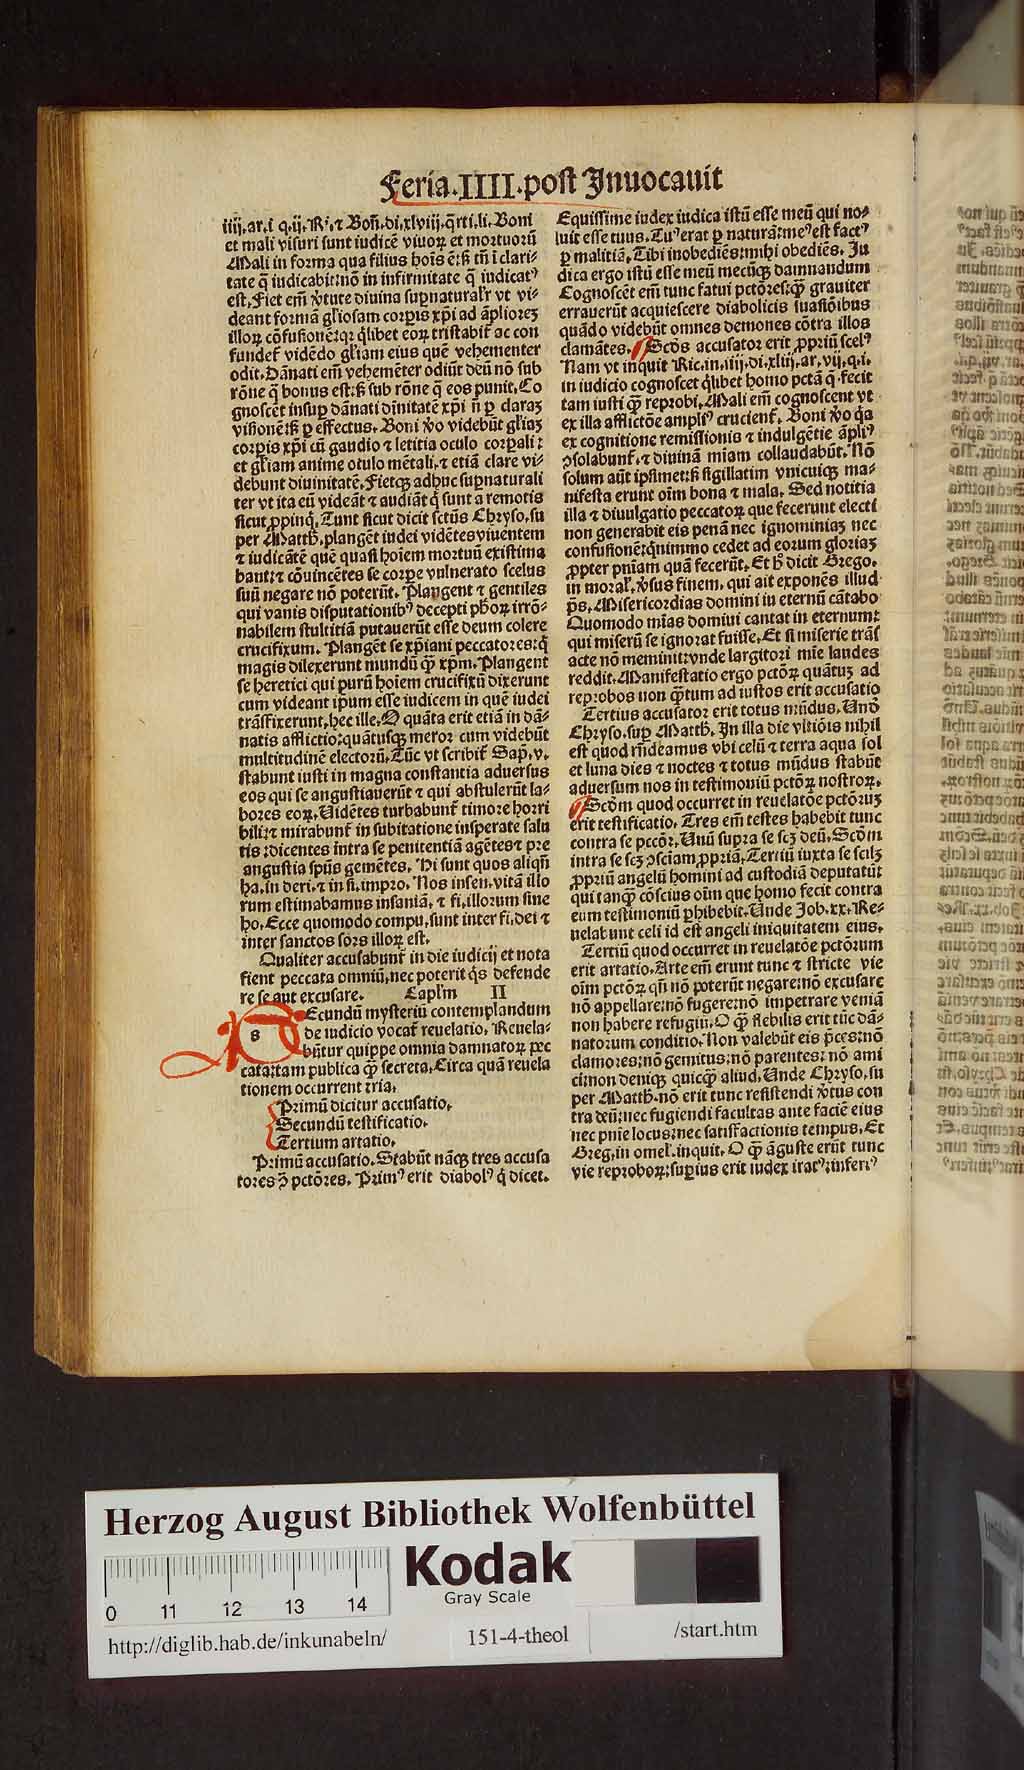 Feria.IIII.post Inuocauit
iiij.ar.i q.ij.Ri.⁊ Boñ.di.xlviij.q̄rti.li. Boni
et mali visuri sunt iudicē viuoꝝ et mortuorū
Mali in forma qua filius hoīs ē:ß tñ ī clari⸗
tate q̄ iudicabit:nō in infirmitate q̄ iudicatꝰ
est. Fiet em̄ v̓tute diuina sup̄naturalr̄ vt vi⸗
deant formā gl̓iosam corpis xp̄i ad āpliorēꝫ
illoꝝ cōfusionē:qꝛ q̄libet eoꝝ tristabit̄ ac con
fundet̄ vidēdo gl̓iam eius quē vehementer
odit. Dānati em̄ vehemēter odiūt deū nō sub
rōne q̄ bonus est:ß sub rōne q̄ eos punit. Co
gnoscēt insup dānati diuinitatē xp̄i ñ p claraꝫ
visionē:ß p effectus. Boni v̓o videbūt gl̓iaꝫ
corpis xp̄i cū gaudio ⁊ letitia oculo corpali:
et gl̓iam anime oculo mētali.⁊ etiā clare vi⸗
debunt diuinitatē. Fietqꝫ adhuc sup̄naturali
ter vt ita eū videāt ⁊ audiāt q̄ sunt a remotis
sicut ꝓpinq̄. Tunt sicut dicit sctūs Chryso.su
per Matth. plangēt iudei vidētes viuentem
⁊ iudicātē quē quasi hoīem mortuū existima
bant:⁊ cōuincētes se corpe vulnerato scelus
suū negare nō poterūt. Plangent ⁊ gentiles
qui vanis disputationibꝰ decepti pħoꝝ irrō⸗
nabilem stultitiā putauerūt esse deum colere
crucifixum. Plangēt se xp̄iani peccatores:q̄
magis dilexerunt mundū q̄ꝫ xp̄m. Plangent
se heretici qui purū hoīem crucifixū dixerunt
cum videant ip̄um esse iudicem in quē iudei
trāsfixerunt. hec ille. O quāta erit etiā in dā⸗
natis afflictio:quātusqꝫ meror cum videbūt
multitudinē electorū. Tūc vt scribit̄ Sap̄.v.
stabunt iusti in magna constantia aduersus
eos qui se angustiauerūt ⁊ qui abstulerūt la⸗
bores eoꝝ. Uidētes turbabunt̄ timore horri
bili:⁊ mirabunt̄ in subitatione insperate salu
tis:dicentes intra se penitentiā agētes ⁊ pre
angustia spūs gemētes. Hi sunt quos aliqñ
ha.in deri.⁊ in si.impro. Nos insen.vitā illo
rum estimabamus insaniā.⁊ fi.illorum sine
ho. Ecce quomodo compu.sunt inter fi.dei ⁊
inter sanctos sors illoꝝ est.
Qualiter accusabunt̄ in die iudicij et nota
fient peccata omniū.nec poterit q̄s defende
re se aut excusare. Capl̄m II
S Ecundū mysteriū contemplandum
de iudicio vocat̄ reuelatio. Reuela⸗
būtur quippe omnia damnatoꝝ pec
cata:tam publica q̄ꝫ secreta. Circa quā reuela
tionem occurrent tria.
Primū dicitur accusatio.
Secundū testificatio.
Tertium artatio.
Primū accusatio. Stabūt nāqꝫ tres accusa
tores ꝯ̄ pctōres. Primꝰ erit diabolꝰ q̄ dicet.
Equissime iudex iudica istū esse meū qui no⸗
luit esse tuus. Tuꝰ erat p naturā:meꝰ est factꝰ
p malitiā. Tibi inobediēs:mihi obediēs. Iu
dica ergo istū esse meū mecūqꝫ damnandum
Cognoscēt em̄ tunc fatui pctōres:q̄ꝫ grauiter
errauerūt acquiescere diabolicis suasiōibus
quādo videbūt omnes demones cōtra illos
clamātes. Scd̓s accusator erit ꝓpriū scelꝰ
Nam vt inquit Ric.in.iiij.di.xliij.ar.vij.q.i.
in iudicio cognoscet q̄libet homo pctā q̄ fecit
tam iusti q̄ꝫ reprobi. Mali em̄ cognoscent vt
ex illa afflictōe ampliꝰ crucient̄. Boni v̓o q̄a
ex cognitione remissionis ⁊ indulgētie āpliꝰ
ꝯsolabunt̄.⁊ diuinā miam collaudabūt. Nō
solum aūt ipsimet:ß sigillatim vnicuiqꝫ ma⸗
nifesta erunt oīm bona ⁊ mala. Sed notitia
illa ⁊ diuulgatio peccatoꝝ que fecerunt electi
non generabit eis penā nec ignominiaꝫ nec
confusionē:q̄nimmo cedet ad eorum gloriaꝫ
ꝓpter pniam quā fecerūt. Et h̓ dicit Grego.
in moral̓.v̓sus finem. qui ait exponēs illud
ps̄. Misericordias domini in eternū cātabo
Quomodo mias domini cantat in eternum:
qui miserū se ignorat fuisse. Et si miserie trās̄
acte nō meminit:vnde largitori mie laudes
reddit. Manifestatio ergo pctōꝝ quātuꝫ ad
reprobos non q̄ꝫtum ad iustos erit accusatio
Tertius accusator erit totus mūdus. Unō
Chryso.sup Matth. In illa die visiōis nihil
est quod rn̄deamus vbi celū ⁊ terra aqua sol
et luna dies ⁊ noctes ⁊ totus mūdus stabūt
aduersum nos in testimoniū pctōꝝ nostroꝝ.
Scd̓m quod occurret in reuelatōe pctōruꝫ
erit testificatio. Tres em̄ testes habebit tunc
contra se pccōr. Unū supra se scꝫ deū. Scōm
intra se scꝫ ꝯsciam ꝓpriā. Tertiū iuxta se scilꝫ
ꝓpriū angelū homini ad custodiā deputatūt
qui tanq̄ꝫ cōscius oīm que homo fecit contra
eum testimoniū phibebit. Unde Job.xx. Re⸗
uelabunt celi id est angeli iniquitatem eius.
Tertiū quod occurret in reuelatōe pctōrum
erit artatio. Arte em̄ erunt tunc ⁊ stricte vie
oīm pctōꝝ qñ nō poterūt negare:nō excusare
nō appellare:nō fugere:nō impetrare veniā
non habere refugiū. O q̄ꝫ flebilis erit tūc dā⸗
natorum conditio. Non valebūt eis p̄ces:nō
clamores:nō gemitus:nō parentes:nō ami
ci:non deniqꝫ quicq̄ꝫ aliud. Unde Chryso.su
per Matth.nō erit tunc resistendi v̓tus con
tra deū:nec fugiendi facultas ante faciē eius
nec pnie locus:nec satisfactionis tempus. Et
Greg.in omel̓.inquit. O q̄ꝫ āguste erūt tunc
vie reproboꝝ:supius erit iudex iratꝰ:inferiꝰ
Herzog August Bibliothek Wolfenbüttel
Kodak
Gray Scale
0 11 12 13 14
http://diglib.hab.de/inkunabeln/ 151-4-theol /start.htm